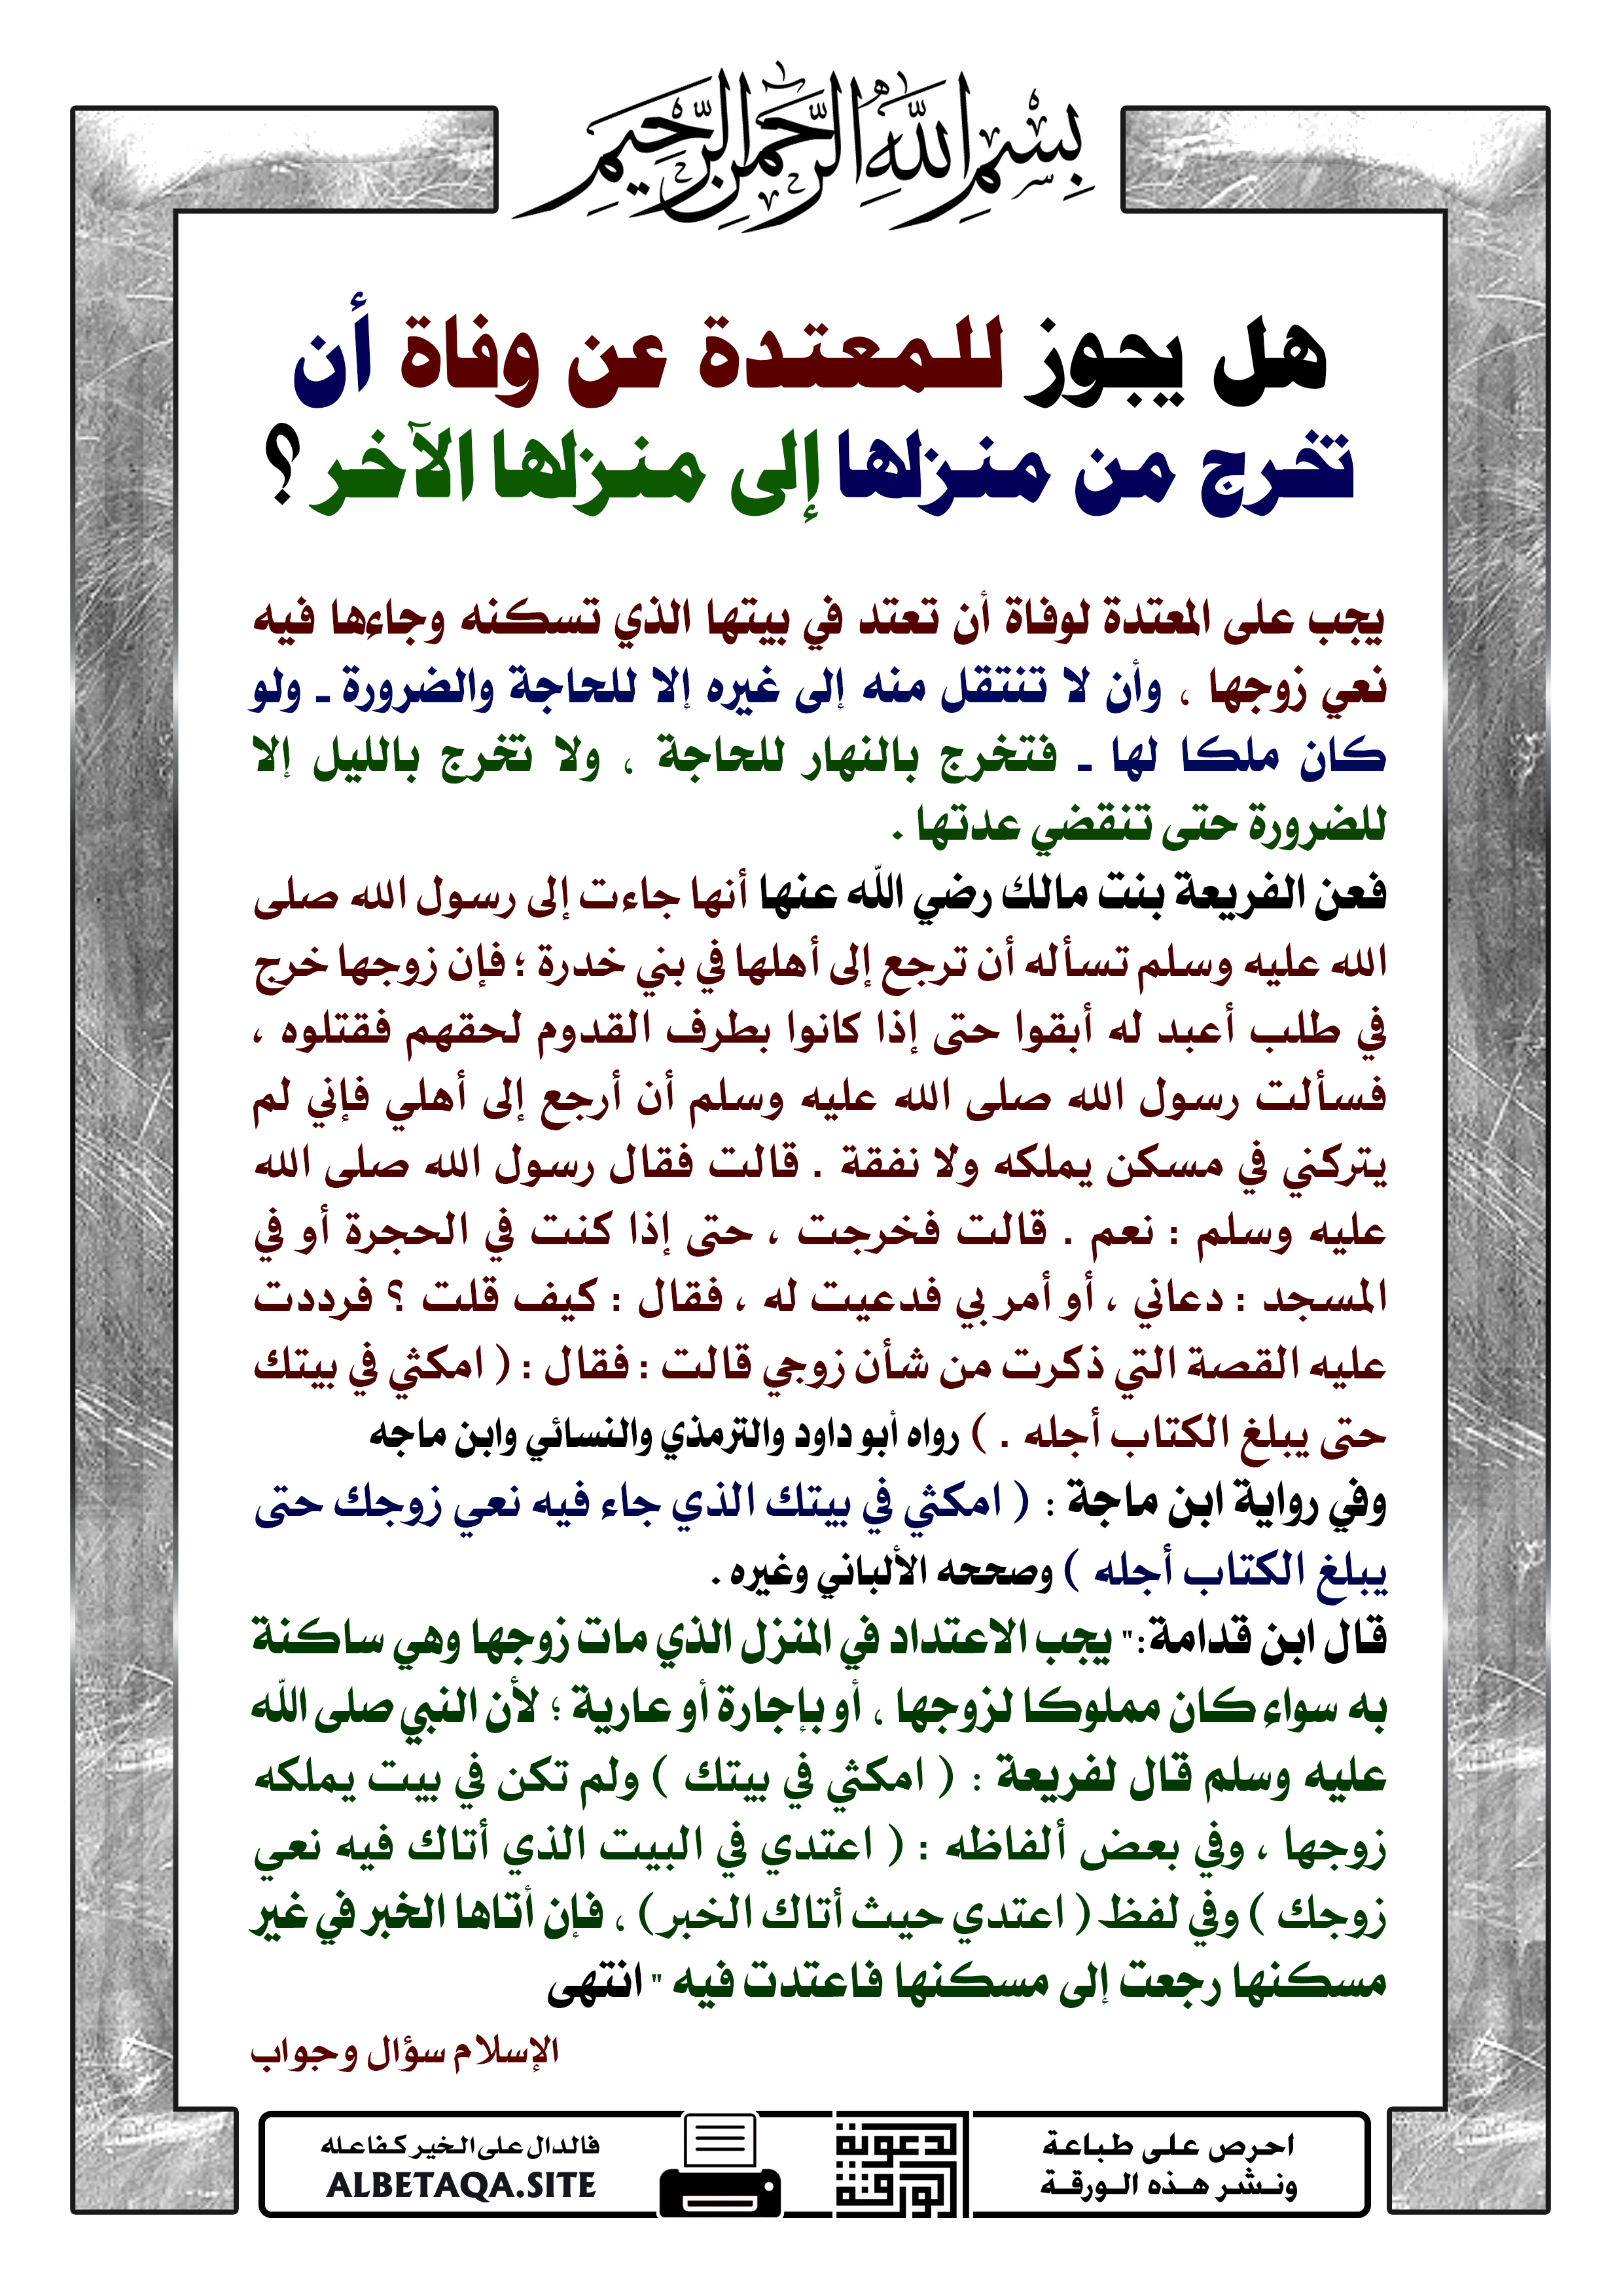 بسم الله الرحمن الرحيم
هل يجوز للمعتدة عن وفاة أن
تخرج من منزلها إلى منزلها الآخر ؟
يجب على المعتدة لوفاة أن تعتد في بيتها الذي تسكنه وجاءها فيه
نعي زوجها ، وأن لا تنتقل منه إلى غيره إلا للحاجة والضرورة ـ ولو
كان ملكا لها ـ فتخرج بالنهار للحاجة ، ولا تخرج بالليل إلا
للضرورة حتى تنقضي عدتها .
فعن الفريعة بنت مالك رضي الله عنها أنها جاءت إلى رسول الله صلى
الله عليه وسلم تسأله أن ترجع إلى أهلها في بني خدرة ؛ فإن زوجها خرج
في طلب أعبد له أبقوا حتى إذا كانوا بطرف القدوم لحقهم فقتلوه ،
فسألت رسول الله صلى الله عليه وسلم أن أرجع إلى أهلي فإني لم
يتركني في مسكن يملكه ولا نفقة . قالت فقال رسول الله صلى الله
عليه وسلم : نعم . قالت فخرجت ، حتى إذا كنت في الحجرة أو في
المسجد : دعاني ، أو أمر بي فدعيت له ، فقال : كيف قلت ؟ فرددت
عليه القصة التي ذكرت من شأن زوجي قالت : فقال : ( امكثي في بيتك
حتى يبلغ الكتاب أجله . ) رواه أبو داود والترمذي والنسائي وابن ماجه
وفي رواية ابن ماجة : ( امكثي في بيتك الذي جاء فيه نعي زوجك حتى
يبلغ الكتاب أجله ) وصححه الألباني وغيره .
قال ابن قدامة:" يجب الاعتداد في المنزل الذي مات زوجها وهي ساكنة
به سواء كان مملوكا لزوجها ، أو بإجارة أو عارية ؛ لأن النبي صلى الله
عليه وسلم قال لفريعة : ( امكثي في بيتك ) ولم تكن في بيت يملكه
زوجها ، وفي بعض ألفاظه : ( اعتدي في البيت الذي أتاك فيه نعي
زوجك ) وفي لفظ ( اعتدي حيث أتاك الخبر) ، فإن أتاها الخبر في غير
مسكنها رجعت إلى مسكنها فاعتدت فيه " انتهى
الإسلام سؤال وجواب
احرص على طباعة
ونشر هذه الورقة
الورقة
الدعوية
فالدال على الخير كفاعله
ALBETAQA.SITE